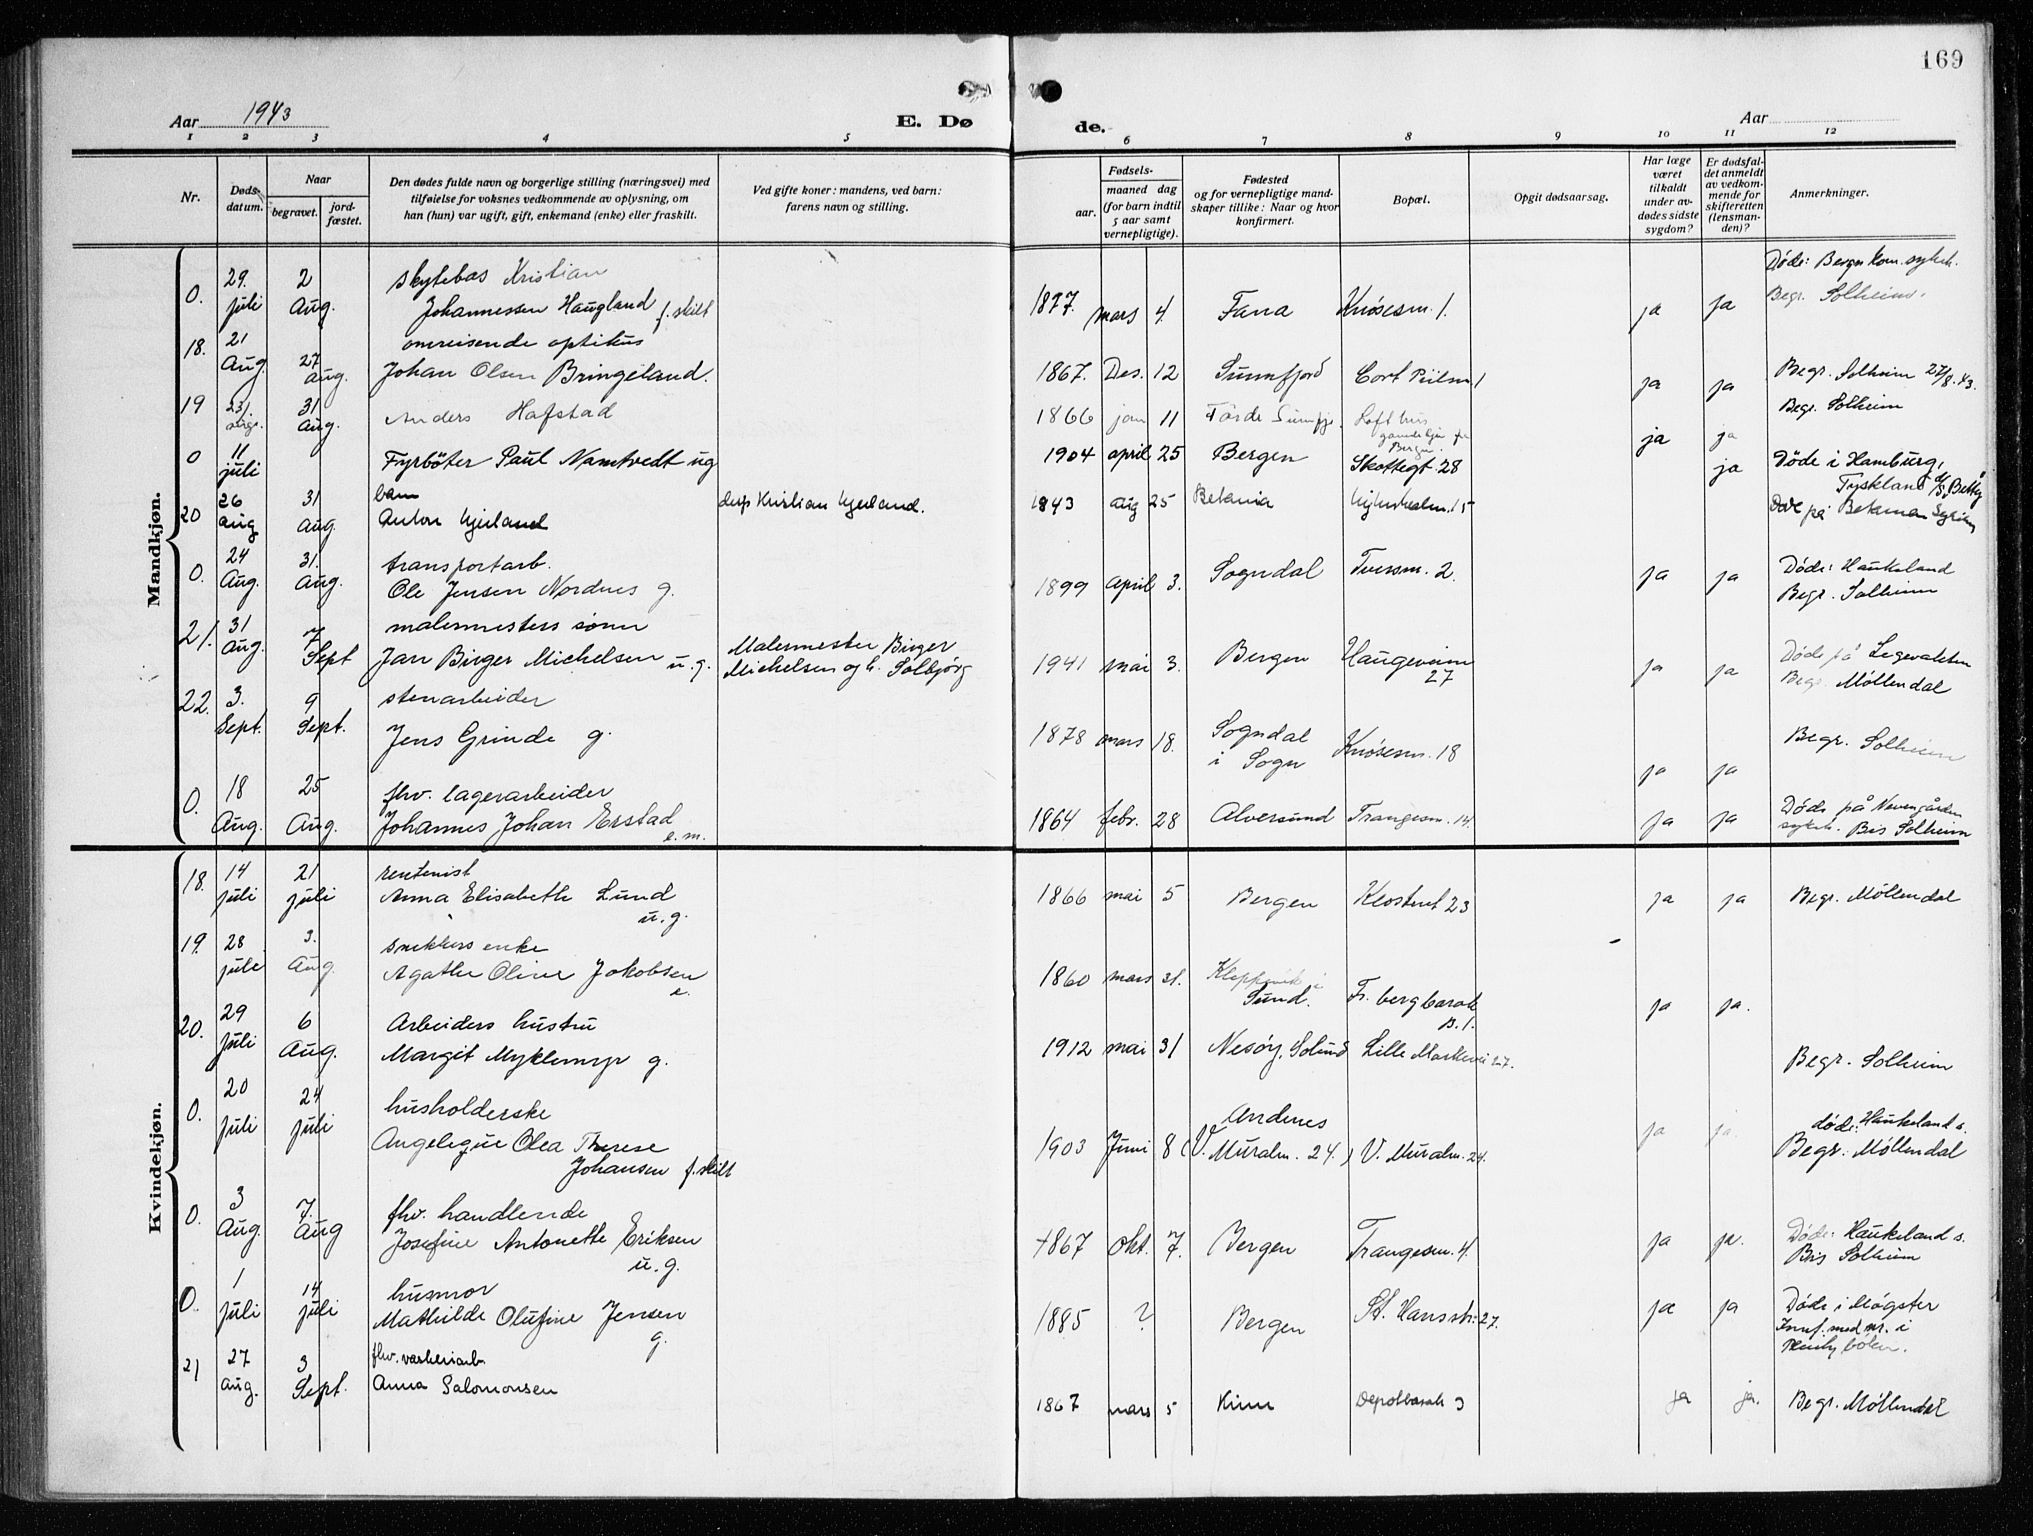 169
Aar 1943
E. Dø
de.
Aar
1 2 3 4 5
6 7 8 9 10 11 12
Nr.
Døds-
datum.
Naar
begravet.
jord-
fæstet.
Den dødes fulde navn og borgerlige stilling (næringsvei) med
tilføielse for voksnes vedkommende av oplysning, om
han (hun) var ugift, gift, enkemand (enke) eller fraskilt.
Ved gifte koner: mandens, ved barn:
farens navn og stilling.
Fødsels-
aar.
maaned dag
(for barn indtil
5 aar samt
vernepligtige).
Fødested
og for vernepligtige mand-
skaper tillike: Naar og hvor
konfirmert.
Bopæl.
Opgit dødsaarsag.
Har læge
været
tilkaldt
under av-
dødes sidste
sygdom?
Er dødsfal-
det anmeldt
av vedkom-
mende for
skifteretten
(lensman-
den)?
Anmerkninger.
Mandkjøn.
0. 29. juli 2 Aug. skytebas Kristian
Johannessen Haugland f. skilt
1877. mars 4. Fana Knøsesm. 1. ja ja
Døde: Bergen kom. sykeh.
Begr. Solheim.
18. 21 Aug. 27 Aug. omreisende optikus
Johan Olsen Bringeland.
1867. Des. 12 Sunnfjord Cort Piilsm. 1 ja ja Begr. Solheim 27/8. 43.
19 23/ 31 Aug. Anders Hafstad
1866 jan 11 Førde Sunnfj. Lofthus
gamlehjem
ja ja Begr. Solheim
0 11 juli Fyrbøter Paul Namtvedt ug
1904 april 25 Bergen Skottegt 28 ja Døde i Hamburg,
Tyskland
20 26 aug 31 Aug. barn
Anton Gjerland
Kristian Gjerland.
1843 aug 25 Betania 15
Døde på Betania
0. 24 Aug. 31. Aug. transportarb.
Ole Jensen Nordnes g.
1899 april 3. Sogndal Tuessm. 2. ja ja Døde: Haukeland
Begr. Solheim
21. 31 Aug. 7 Sept malermesters sønn
Jan Birger Michelsen u.g.
Malermester Birger
Michelsen og h. Solbjørg
1941 mai 3. Bergen Haugeveien
27 ja ja Døde på Legevakten
Begr. Møllendal
22. 3. Sept. 9 Sept. stenarbeider
Jens Grinde g.
1878 mars 18. Sogndal
i Sogn Knøsesm. 18 ja ja Begr. Solheim
0. 18 Aug. 25 Aug. fhv. lagerarbeider
Johannes Johan Erstad
e. m.
1864 febr. 28 Alversund Trangesm. 14. ja ja Døde på Nevengården
sykeh. Bis Solheim
Kvindekjøn.
18. 14 juli 21 juli rentenist
Anna Elisabeth Lund
u. g.
1866 mai 5 Bergen Klostret 23 ja ja Begr. Møllendal
19. 28 juli 3. Aug. snekkers enke
Agathe Oline Jakobsen
e.
1860 mars 31. Kleppsvik i
Sund. Fr. bergbarak
B. 1. ja ja.
20. 29 Juli 6 Aug. Arbeiders hustru
Margit Myklemyr g.
1912 mai 31 Nesøy, Solund Lille Markevei 27. Begr. Solheim
0. 20 Juli 24 Juli husholderske
Angelique Olea Therese
Johansen f. skilt
1903 Juni 8 Andenes
(V. Muralm. 24.) V. Muralm. 24. ja ja. døde: Haukeland s.
Begr: Møllendal
0. 3 Aug. 7. Aug fhv. handlende
Josefine Antonette Eriksen
u. g.
1867 okt. 7. Bergen Trangesm. 4. ja ja. Døde: Haukeland s.
Bis Solheim
0. 1 juli 14 juli husmor
Mathilde Olufine Jensen
g.
1885 ? Bergen St. Hansstr: 27. ja ja Døde i Møgster
Innf. med nr. i
21 27 Aug. 3 Sept. fhv. vaskeriarb.
Anna Salomonsen
1867 mars 5 Kinn Depotbarak 3 ja ja. Begr. Møllendal